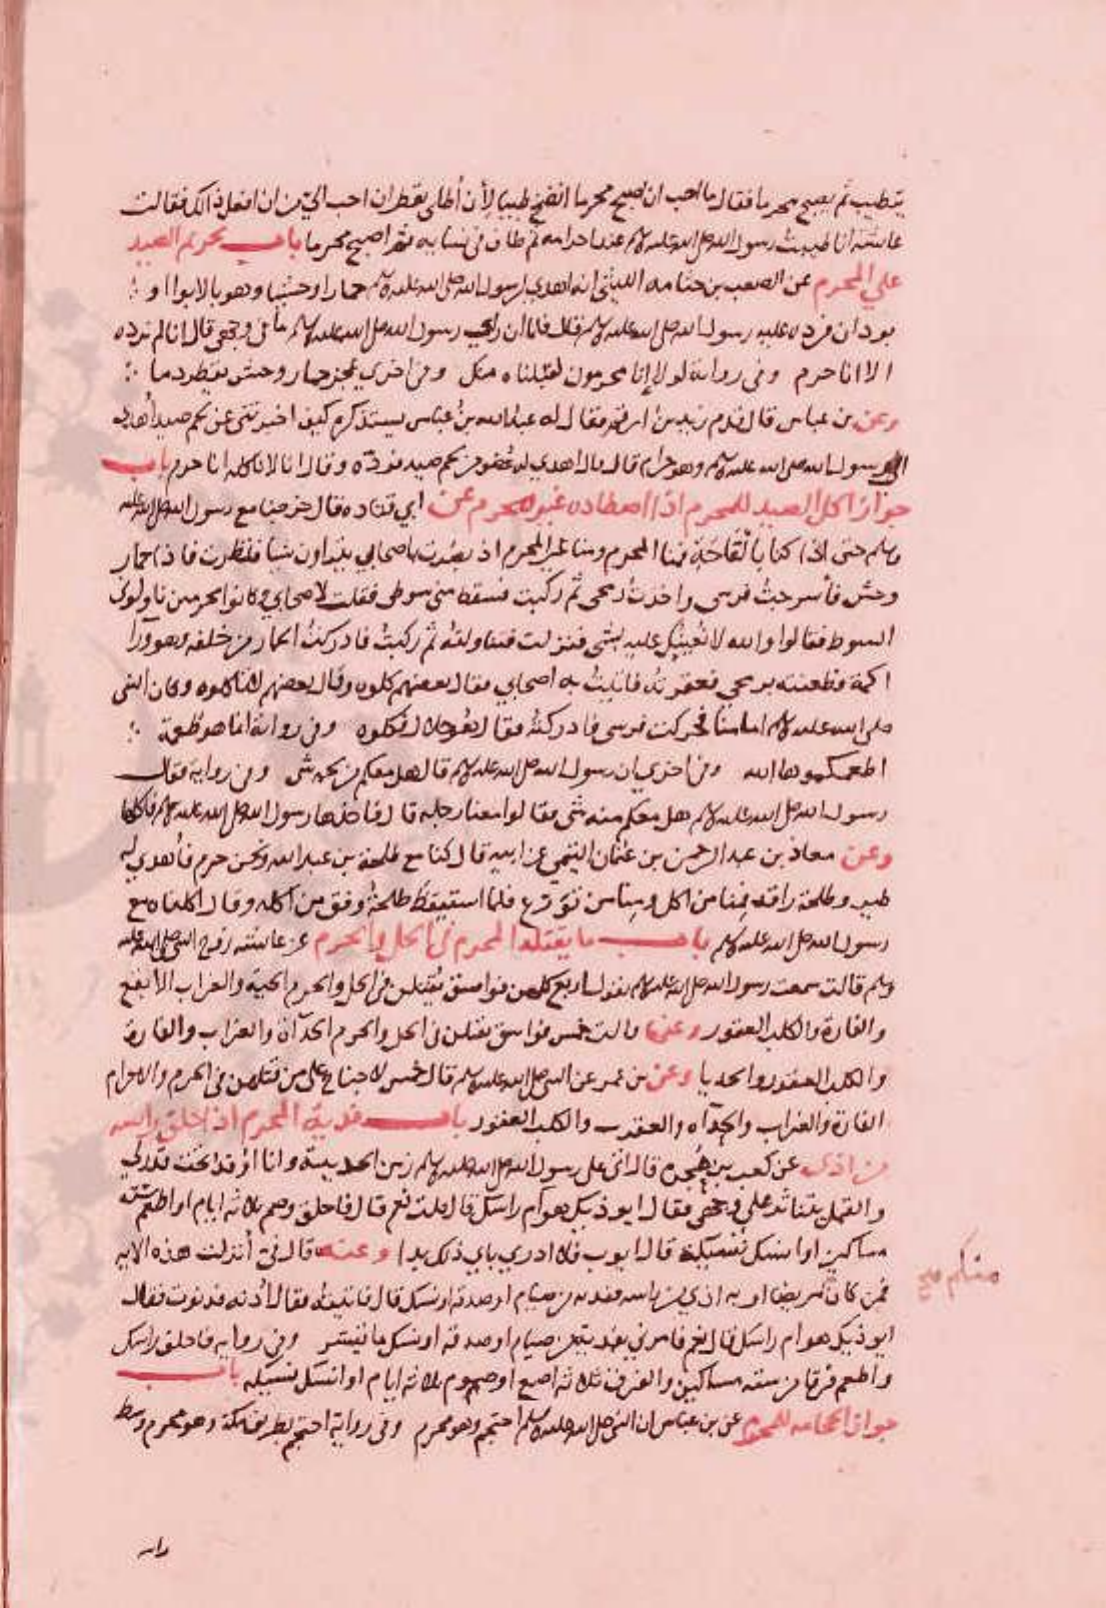 يتطيب ثم يصبح محرما فقال ما احب ان اصبح محرما انضخ طيبا لأن أطلى بقطران احب الي من ان افعل ذالك فقالت
عايشة انا طيبت رسول الله صلى الله عليه وسلم عند احرامه ثم طاف في نسايه ثم اصبح محرما باب تحريم الصيد
على المحرم عن الصعب بن جثامه الليثي انه اهدى لرسول الله صلى الله عليه وسلم حمارا وحشيا وهو بالابوا او
بودان فرده عليه رسول الله صلى الله عليه وسلم قال فلما ان راى رسول الله صلى الله عليه وسلم ما في وجهي قال انا لم نرده
الا انا حرم وفي رواية لولا إنا محرمون لقبلناه منك وفي اخرى عجز حمار وحش يقطر دما
وعن بن عباس قال قدم زيد بن ارقم فقال له عبد الله بن عباس يستذكره كيف اخبرتني عن لحم صيد أهدى
الى رسول الله صلى الله عليه وسلم وهو حرام قال قال اهدي له عضو من لحم صيد فرده وقال انا لا ناكله انا حرم باب
جواز اكل الصيد للمحرم اذا اصطاده غير المحرم عن ابي قتاده قال خرجنا مع رسول الله صلى الله عليه
وسلم حتى اذا كنا بالقاحة فمنا المحرم ومنا غير المحرم اذ بصرت باصحابي يتراون شيا فنظرت فاذا حمار
وحش فأسرجت فرسي واخذت رمحى ثم ركبت فسقط مني سوطى فقلت لاصحابي وكانوا محرمين ناولوني
السوط فقالوا والله لا نعينك عليه بشى فنزلت فتناولته ثم ركبت فادركت الحمار من خلفه وهو ورآ
اكمة فطعنته برمحي فعقرته فاتيت به اصحابي فقال بعضهم كلوه وقال بعضهم لا تاكلوه وكان النبى
صلى الله عليه وسلم امامنا فحركت فرسى فادركته فقال هو حلال فكلوه وفي رواية انما هو طعمة
اطعمكموها الله وفي اخرى ان رسول الله صلى الله عليه وسلم قال هل معكم من لحمه شى وفي رواية فقال
رسول الله صلى الله عليه وسلم هل معكم منه شى فقالوا معنا رجله قال فاخذها رسول الله صلى الله عليه وسلم فاكلها
وعن معاذ بن عبد الرحمن بن عثمان التيمي عن ابيه قال كنا مع طلحة بن عبد الله ونحن حرم فأهدي له
طير وطلحة راقد فمنا من اكل ومنا من تورع فلما استيقظ طلحة وفق من اكله وقال اكلناه مع
رسول الله صلى الله عليه وسلم باب ما يقتله المحرم في الحل والحرم عن عائشه زوج النبى صلى الله عليه
وسلم قالت سمعت رسول الله صلى الله عليه وسلم يقول اربع كلهن فواسق يقتلن في الحل والحرم الحية والغراب الابقع
والفارة والكلب العقور وعنها قالت خمس فواسق يقتلن في الحل والحرم الحدآة والغراب والفارة
والكلب العقور والحديا وعن بن عمر عن النبى صلى الله عليه وسلم قال خمس لا جناح على من قتلهن في الحرم والاحرام
الفارة والغراب والحدآه والعقرب والكلب العقور باب فدية المحرم اذا حلق راسه
من اذى عن كعب بن عجره قال اتى على رسول الله صلى الله عليه وسلم زمن الحديبية وانا اوقد تحت قدر لي
والقمل يتناثر على وجهى فقال ايوذيك هوام راسك قال قلت نعم قال فاحلق وصم ثلاثة ايام او اطعم ستة
مساكين او انسك نسيكة قال ايوب فلا ادري باي ذلك بدا وعنه قال في أنزلت هذه الاية
فمن كان مريضا او به اذى من راسه ففدية من صيام او صدقه او نسك قال فاتيته فقال أدنه فدنوت فقال
ايوذيك هوام راسك قال نعم فامرني بفدية من صيام او صدقه او نسك ما تيسر وفي روايه فاحلق راسك
واطعم فرقا بين سته مساكين والفرق ثلاثة اصع او صم ثلاثه ايام او انسك نسيكه باب
جواز الحجامه للمحرم عن بن عباس ان النبى صلى الله عليه وسلم احتجم وهو محرم وفي رواية احتجم بطريق مكة وهو محرم وسط
منكم صح
راسه